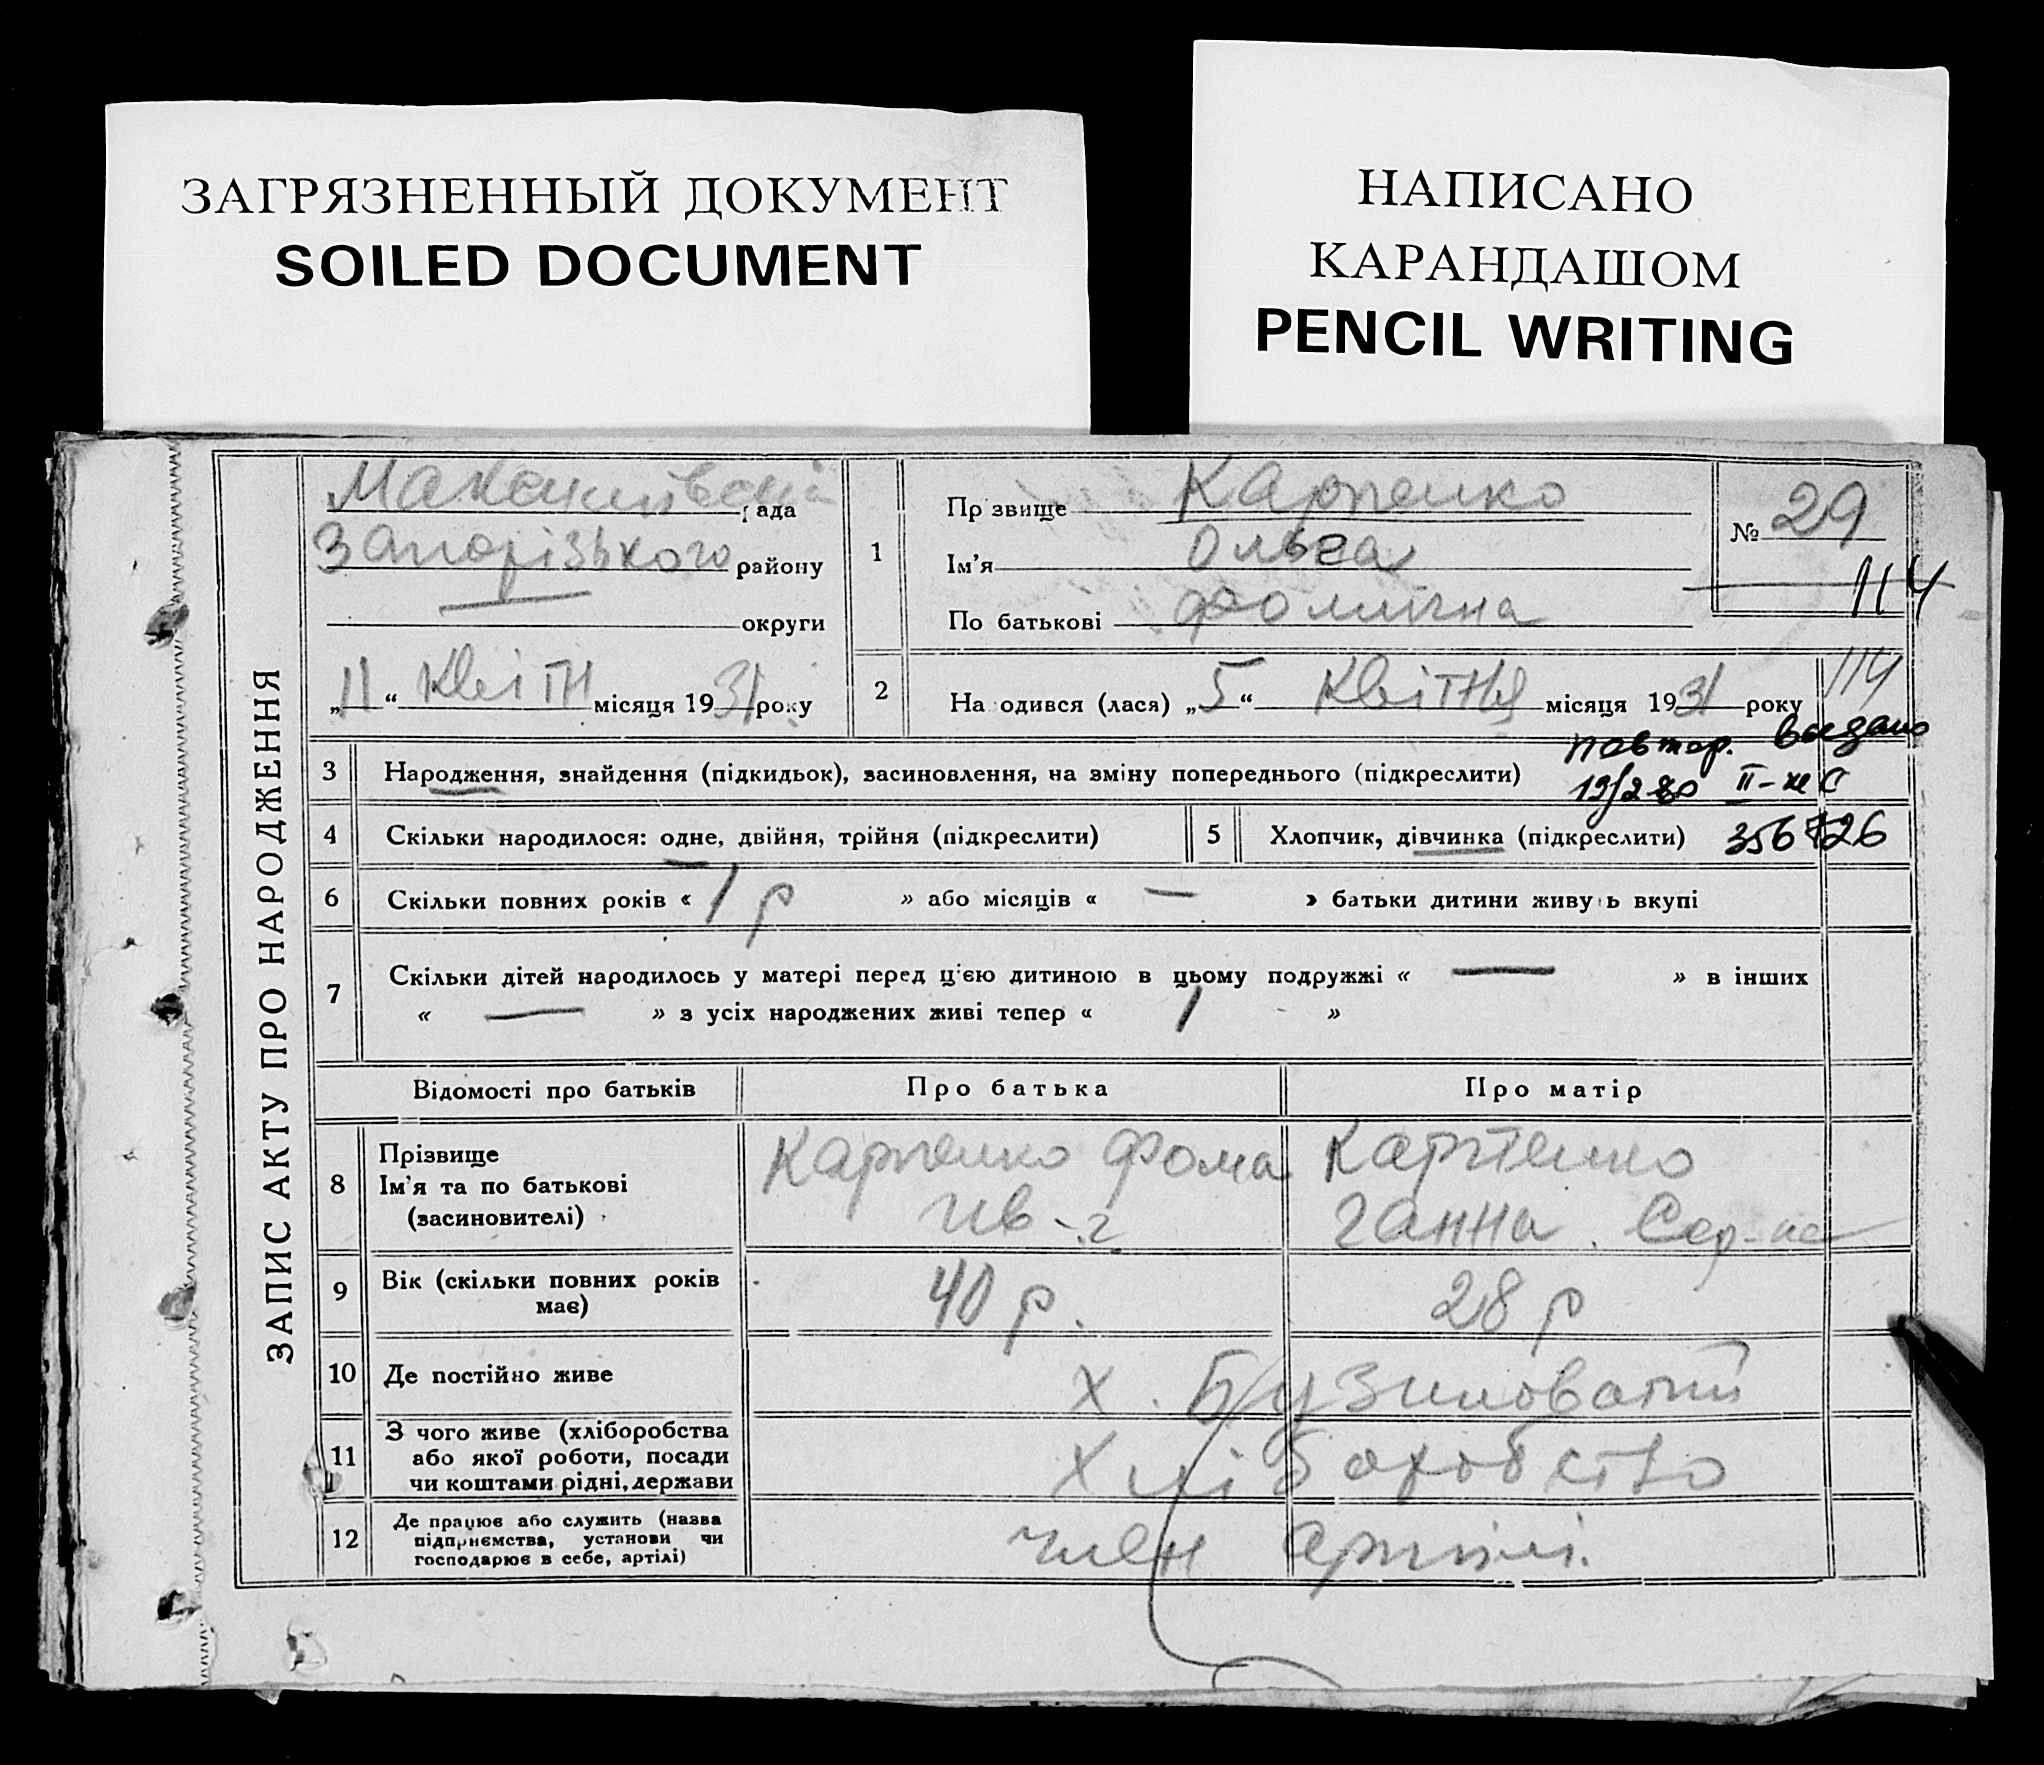 ЗАГРЯЗНЕННЫЙ ДОКУМЕНТ
SOILED DOCUMENT
НАПИСАНО
КАРАНДАШОМ
PENCIL WRITING
ЗАПИС АКТУ ПРО НАРОДЖЕННЯ
рада
Запорізького району
округи
„11“ Квітн місяця 1931 року
1
Прізвище Карпенко
Ім'я Ольга
По батькові Фомічна
№ 29
114
2
Народився (лася) „5“ Квітня місяця 1931 року
114
повтор. выдано
3 Народження, знайдення (підкидьок), засиновлення, на зміну попереднього (підкреслити)
19/2 80 II-жС
4 Скільки народилося: одне, двійня, трійня (підкреслити)
5 Хлопчик, дівчинка (підкреслити) 356726
6 Скільки повних років « 1 р » або місяців « — » батьки дитини живуть вкупі
7 Скільки дітей народилось у матері перед цією дитиною в цьому подружжі « — » в інших
« — » з усіх народжених живі тепер « 1 »
Відомості про батьків Про батька Про матір
8 Прізвище
Ім'я та по батькові
(засиновителі)
Карпенко Фома
Ив-ч
Карпенко
Ганна Сер-на
9 Вік (скільки повних років
має)
40 р. 28 р
10 Де постійно живе х. Бузиноватий
11 З чого живе (хліборобства
або якої роботи, посади
чи коштами рідні, держави
Хліборобство
12 Де працює або служить (назва
підприємства, установи чи
господарює в себе, артілі)
член артілі.